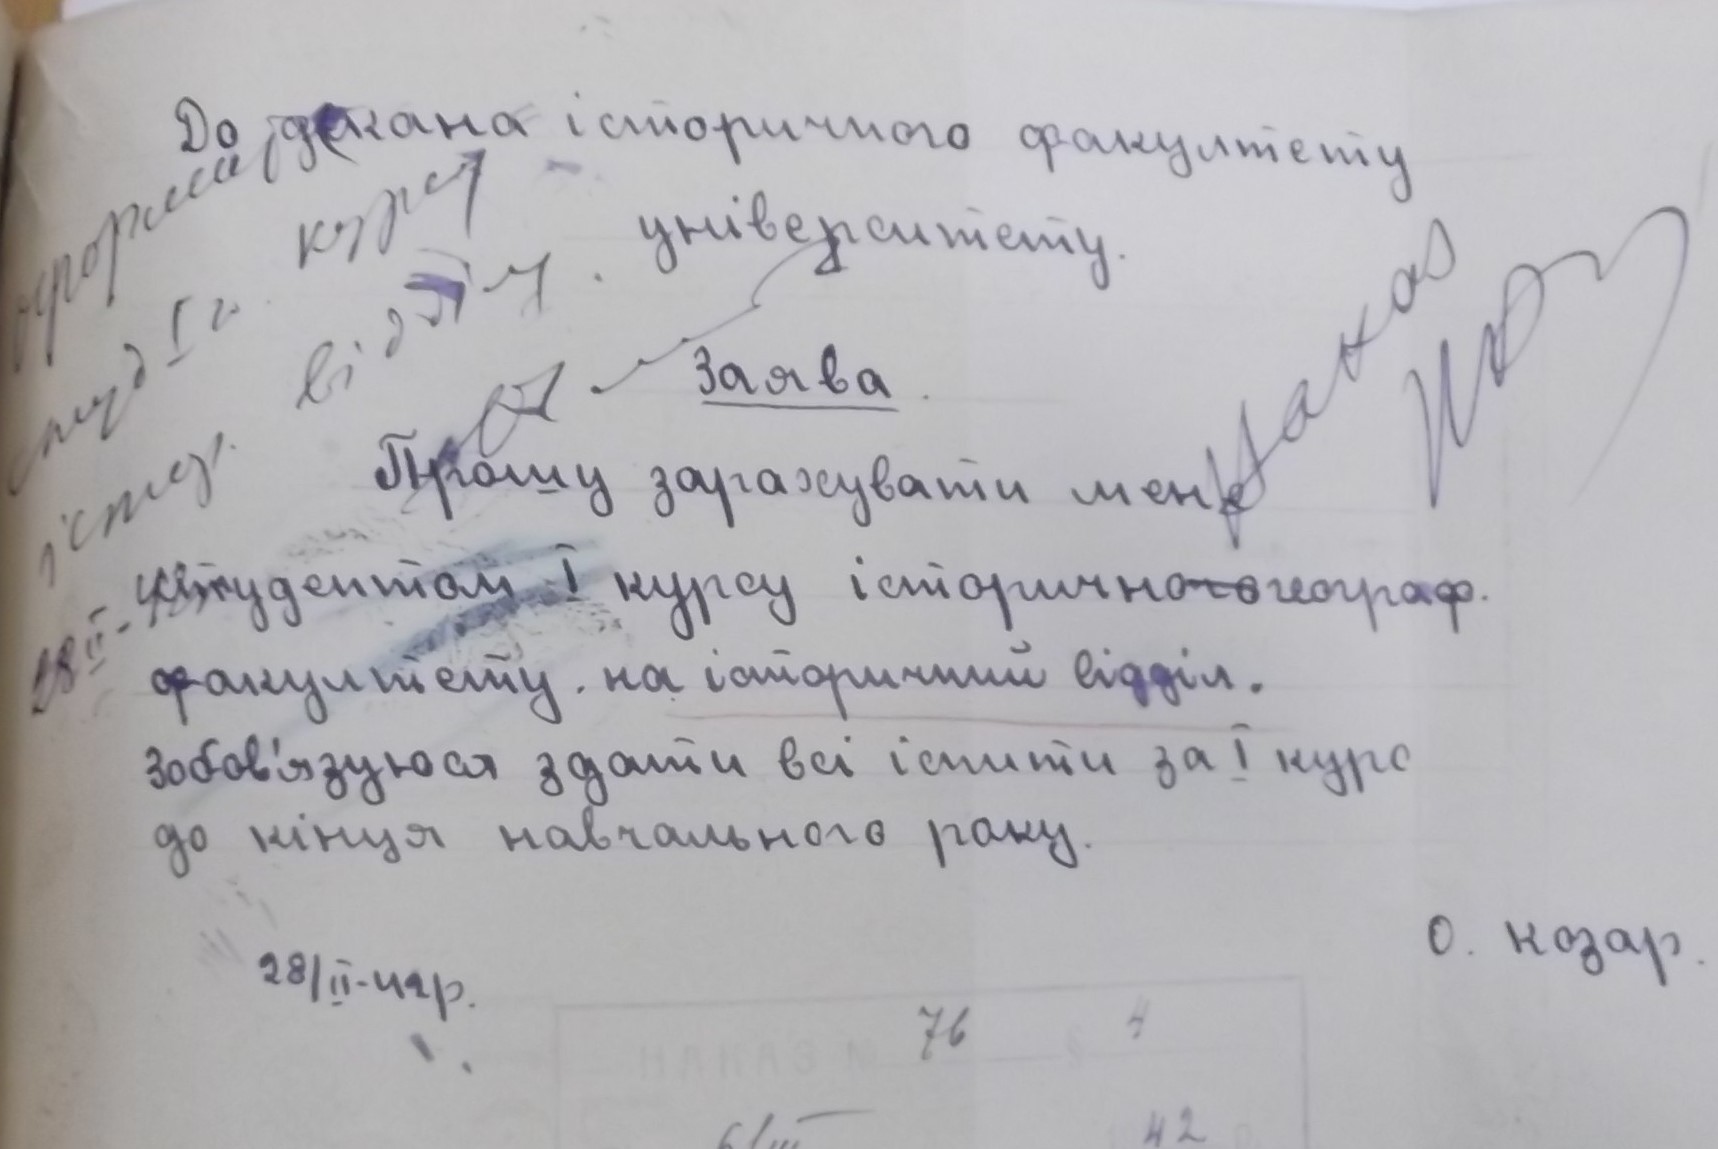 До декана історичного факультету
університету.
Заява.
Прошу зарахувати мене
студентом І курсу історичногеограф.
факультету. на історичний відділ.
Зобов'язуюся здати всі іспити за І курс
до кінця навчального року.
О. Козар.
28/ІІ-42р.
Наказ
оформи
студ І г. курсу
істор. відділу.
28 ІІ-42
НАКАЗ № 76 4
6/ІІІ 42